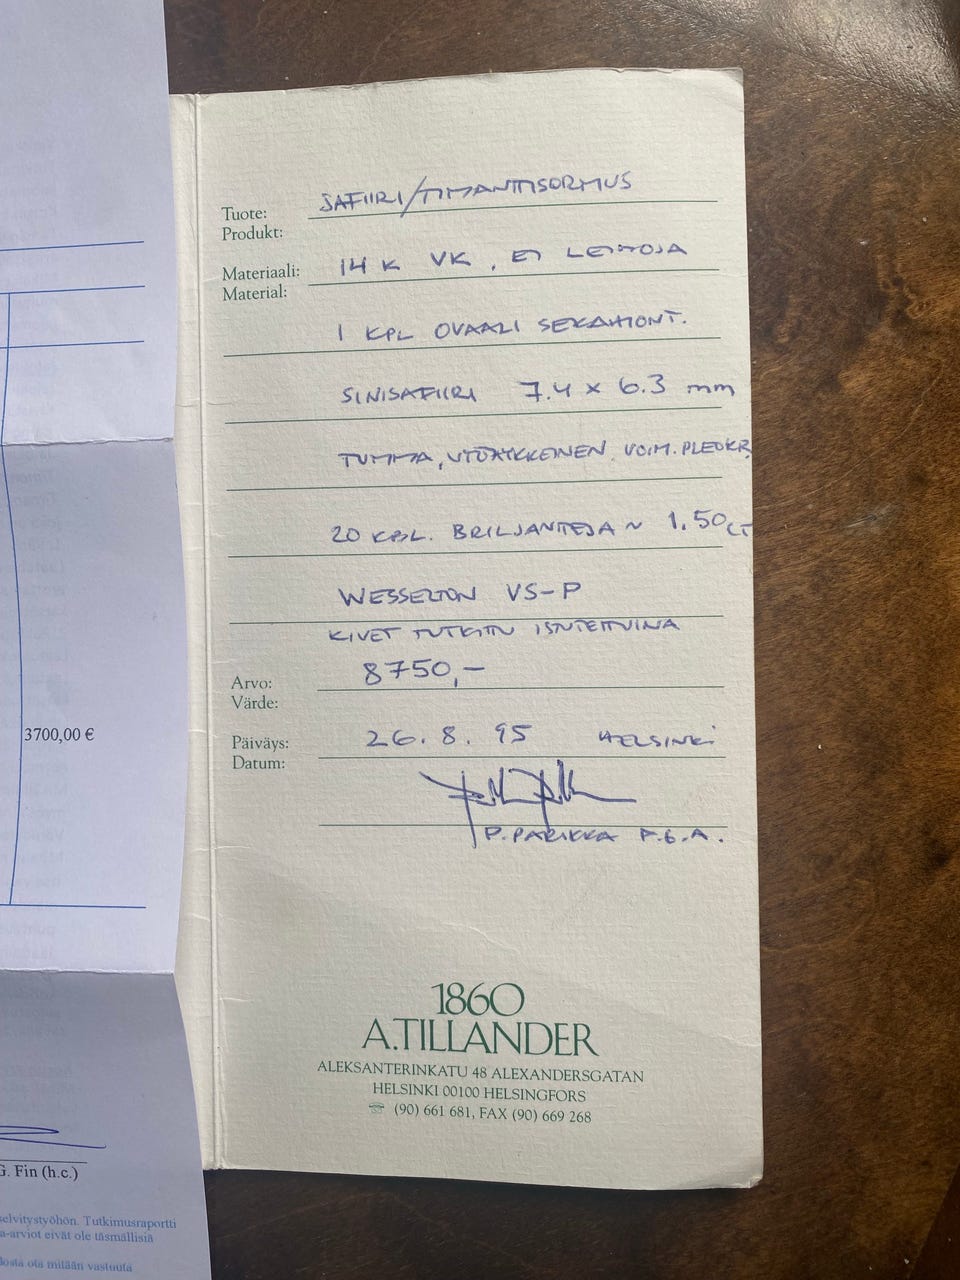 SAFIIRI/TIMANTTISORMUS
Tuote:
Produkt:
14 K VK, EI LEIMOJA
Materiaali:
Material:
1 KPL OVAALI SEKAHIONT.
SINISAFIIRI 7.4 x 6.3 mm
TUMMA, VOIM. PLEOKR.
20 KPL. BRILJANTEJA ~ 1.50 CT
WESSELTON VS-P
KIVET TUTKITTU ISTUTETTUINA
8750,-
Arvo:
Värde:
26.8.95 HELSINKI
Päiväys:
Datum:
P. PARIKKA F.G.A.
1860
A.TILLANDER
ALEKSANTERINKATU 48 ALEXANDERSGATAN
HELSINKI 00100 HELSINGFORS
☏ (90) 661 681, FAX (90) 669 268
3700,00 €
G. Fin (h.c.)
selvitystyöhön. Tutkimusraportti
a-arviot eivät ole täsmällisiä
dosta ota mitään vastuuta